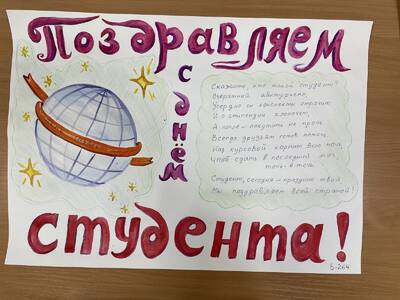 Поздравляем
с днём
студента!
Скажите, кто такой студент?
Вчерашний абитуриент,
Усердно он конспекты строчит
И о стипендии хлопочет,
А после – покутить не прочь.
Всегда друзьям готов помочь,
Над курсовой корпит всю ночь,
Чтоб сдать в последний миг,
точь-в-точь.
Студент, сегодня – праздник твой
Мы поздравляем всей страной!
Б-264